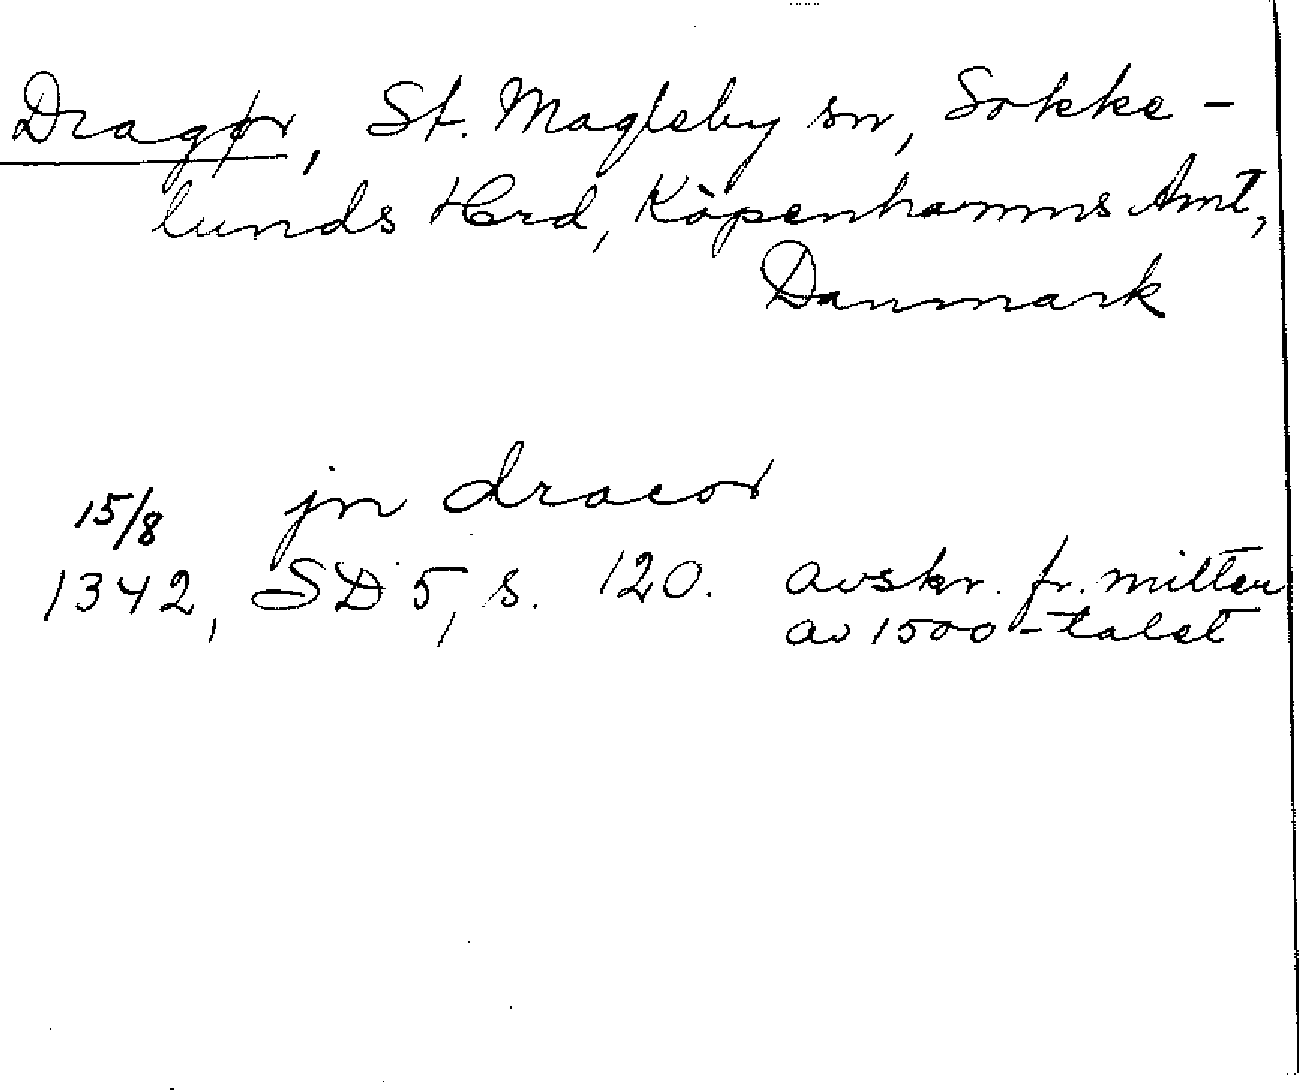 Dragør, St. Magleby sn, Sokke-
lunds Hrd, Köpenhamns Amt,
Danmark
15/8 jn dracor
1342, SD 5, s. 120. avskr. fr. mitten
av 1500-talet